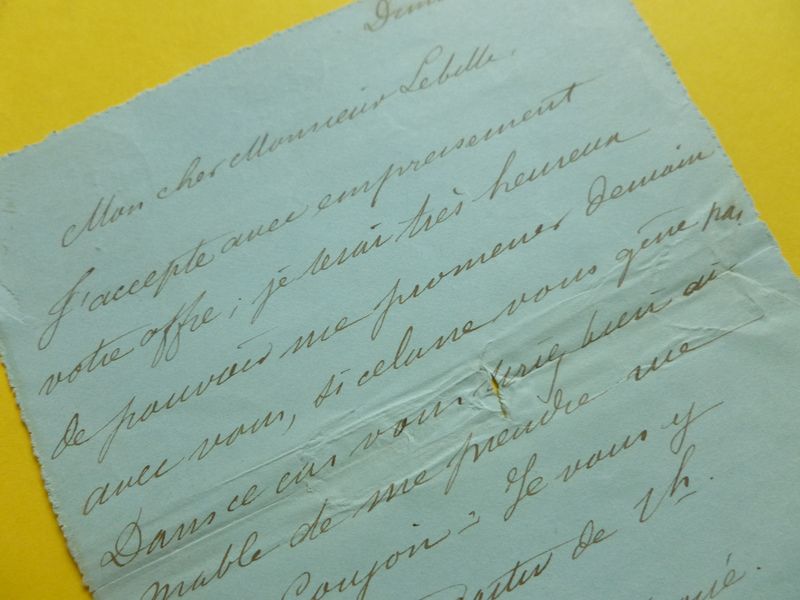 Mon cher Monsieur Lebelle.
J'accepte avec empressement
votre offre; je serai très heureux
de pouvoir me promener demain
avec vous, si cela ne vous gêne pas,
Dans ce cas vous seriez bien ai-
mable de me prendre rue
Goujon - Je vous y
partir de 1h.